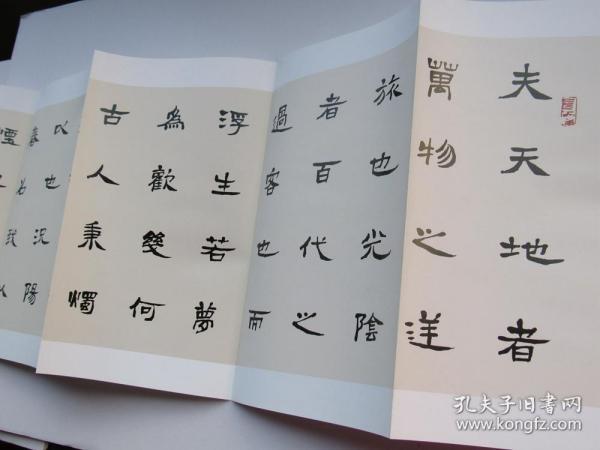 夫天地者
萬物之逆
旅也光陰
者百代之
過客也而
浮生若夢
為歡幾何
古人秉燭
以也況陽
春召我以
煙
孔夫子旧书网
www.kongfz.com